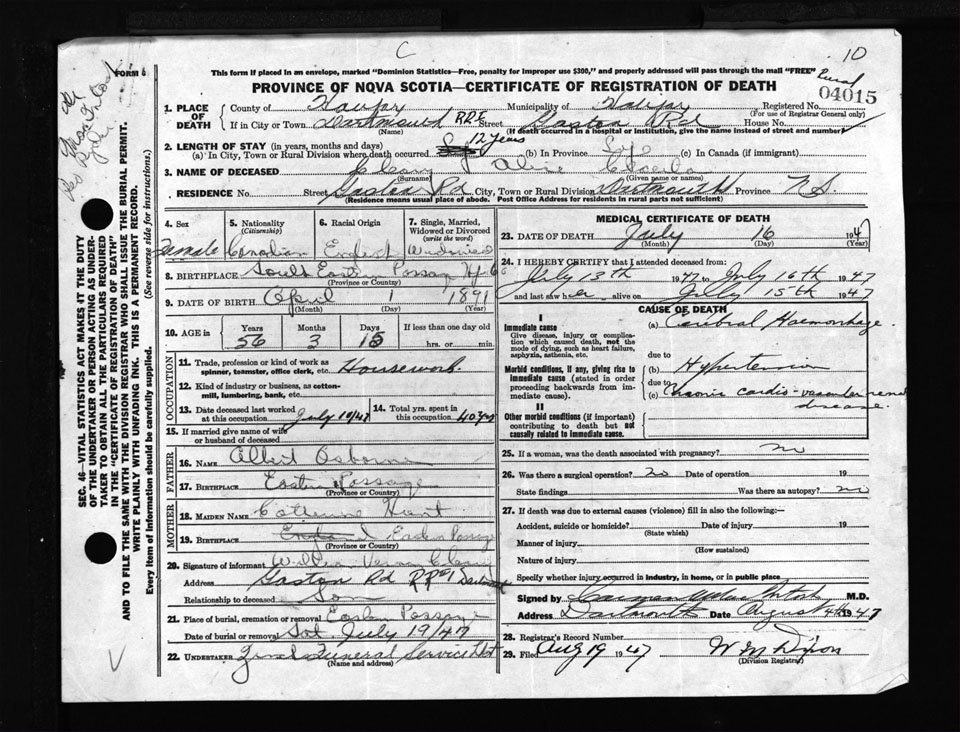 C
10
FORM 6
This form if placed in an envelope, marked "Dominion Statistics—Free, penalty for improper use $300," and properly addressed will pass through the mail "FREE"
Rural
PROVINCE OF NOVA SCOTIA—CERTIFICATE OF REGISTRATION OF DEATH
04015
1. PLACE OF DEATH
County of Halifax Municipality of Halifax Registered No.
(For use of Registrar General only)
If in City or Town Dartmouth RRE Street Gaston Rd House No.
(Name) (If death occurred in a hospital or institution, give the name instead of street and number)
2. LENGTH OF STAY (in years, months and days)
(a) In City, Town or Rural Division where death occurred 12 years (b) In Province (c) In Canada (if immigrant)
3. NAME OF DECEASED Cleary Aline
(Surname) (Given name or names)
RESIDENCE No. Street Gaston Rd City, Town or Rural Division Dartmouth Province N.S.
(Residence means usual place of abode. Post Office Address for residents in rural parts not sufficient)
4. Sex 5. Nationality (Citizenship) 6. Racial Origin 7. Single, Married, Widowed or Divorced (write the word)
Female Canadian English Widowed
8. BIRTHPLACE South Eastern Passage Hfx Co
(Province or Country)
9. DATE OF BIRTH April 1 1891
(Month) (Day) (Year)
10. AGE in Years Months Days If less than one day old
56 3 15 hrs. or min.
OCCUPATION
11. Trade, profession or kind of work as spinner, teamster, office clerk, etc. Housework.
12. Kind of industry or business, as cotton-mill, lumbering, bank, etc.
13. Date deceased last worked at this occupation July 10/47 14. Total yrs. spent in this occupation 40 yrs
15. If married give name of wife or husband of deceased
FATHER
16. NAME Albert Osborne
17. BIRTHPLACE Eastern Passage
(Province or Country)
MOTHER
18. MAIDEN NAME Catherine Hunt
19. BIRTHPLACE England Eastern Passage
(Province or Country)
20. Signature of informant William Vernon Cleary
Address Gaston Rd RR#1 Dartmouth
Relationship to deceased Son
21. Place of burial, cremation or removal East Passage
Date of burial or removal Sat. July 19/47
22. UNDERTAKER Funeral Service Dart
(Name and address)
MEDICAL CERTIFICATE OF DEATH
23. DATE OF DEATH July 16 1947
(Month) (Day) (Year)
24. I HEREBY CERTIFY that I attended deceased from:
July 13th 1947 to July 16th 1947
and last saw her alive on July 15th 1947
CAUSE OF DEATH
I
Immediate cause
Give disease, injury or complication which caused death, not the mode of dying, such as heart failure, asphyxia, asthenia, etc.
(a) Cerebral Haemorrhage
due to
Morbid conditions, if any, giving rise to immediate cause (stated in order proceeding backwards from immediate).
(b) Hypertension
due to
(c) Chronic cardio-vascular renal disease.
II
Other morbid conditions (if important) contributing to death but not causally related to immediate cause.
25. If a woman, was the death associated with pregnancy? no
26. Was there a surgical operation? no Date of operation 19
State findings Was there an autopsy? no
27. If death was due to external causes (violence) fill in also the following:—
Accident, suicide or homicide? Date of injury 19
(State which)
Manner of injury
(How sustained)
Nature of injury
Specify whether injury occurred in industry, in home, or in public place
Signed by M.D.
Address Dartmouth Date August 4th 1947
28. Registrar's Record Number
29. Filed Aug 19 1947 W M Dixon
(Division Registrar)
SEC. 46—VITAL STATISTICS ACT MAKES IT THE DUTY
OF THE UNDERTAKER OR PERSON ACTING AS UNDERTAKER TO OBTAIN ALL THE PARTICULARS REQUIRED
IN THE "CERTIFICATE OF REGISTRATION OF DEATH"
AND TO FILE THE SAME WITH THE DIVISION REGISTRAR WHO SHALL ISSUE THE BURIAL PERMIT.
WRITE PLAINLY WITH UNFADING INK. THIS IS A PERMANENT RECORD.
Every item of information should be carefully supplied. (See reverse side for instructions.)